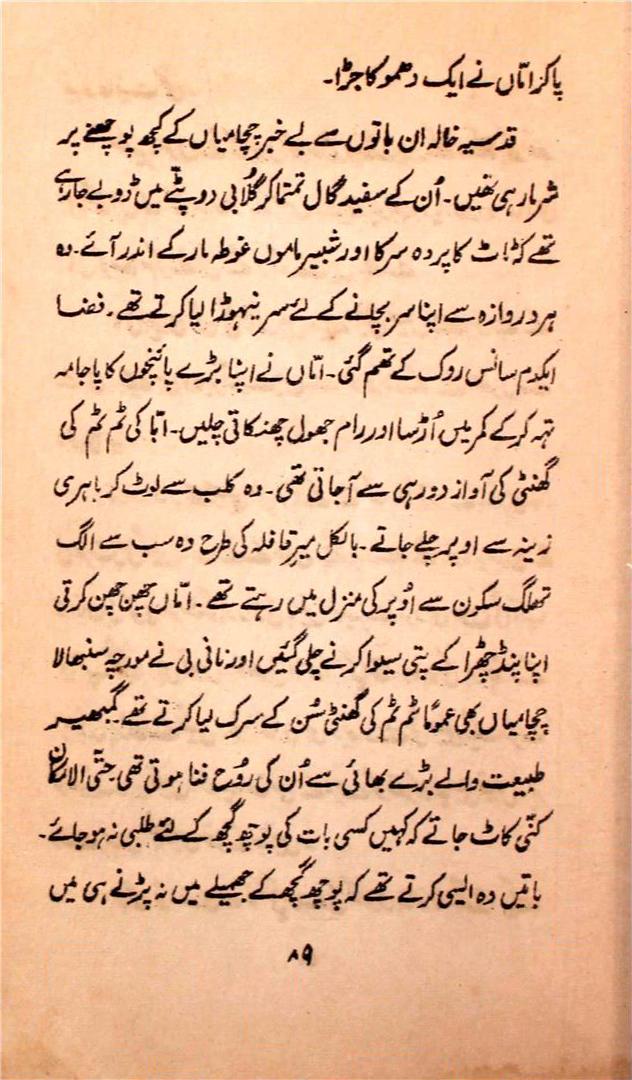 پاکر اماں نے ایک دھموکا جڑا۔
قدسیہ خالہ ان باتوں سے بے خبر چچا میاں کے کچھ پوچھنے پر
شرما رہی تھیں۔ اُن کے سفید گال تمتما کر گلابی دوپٹے میں ڈوبے جا رہے
تھے کہ ٹاٹ کا پردہ سرکا اور شبیر ماموں غوطہ مار کے اندر آئے۔ وہ
ہر دروازہ سے اپنا سر بچانے کے لئے سر نیہوڑا لیا کرتے تھے۔ فضا
ایکدم سانس روک کے تھم گئی۔ اماں نے اپنا بڑے پائنچوں کا پاجامہ
تہہ کر کے کمر میں اُڑسا اور رام جھول چھنکاتی چلیں۔ ابا کی ٹم ٹم کی
گھنٹی کی آواز دور ہی سے آ جاتی تھی۔ وہ کلب سے لوٹ کر باہری
زینہ سے اوپر چلے جاتے۔ بالکل میر قافلہ کی طرح وہ سب سے الگ
تھلگ سکون سے اُوپر کی منزل میں رہتے تھے۔ اماں چھن چھن کرتی
اپنا پنڈ چھڑا کے پتی سیلوا کرنے چلی گئیں اور نانی بی نے مورچہ سنبھالا
چچا میاں بھی عموماً ٹم ٹم کی گھنٹی سُن کے سرک لیا کرتے تھے گمبھیر
طبیعت والے بڑے بھائی سے اُن کی رُوح فنا ہوتی تھی۔ حتّی الامکان
کنّی کاٹ جاتے کہ کہیں کسی بات کی پوچھ گچھ کے لئے طلبی نہ ہو جائے۔
باتیں وہ ایسی کرتے تھے کہ پوچھ گچھ کے جھمیلے میں نہ پڑنے ہی میں
۸۹